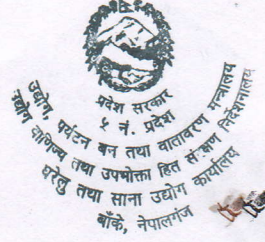 प्रदेश सरकार
५ नं. प्रदेश
उद्योग, पर्यटन बन तथा वातावरण मन्त्रालय
उद्योग वाणिज्य तथा उपभोक्ता हित संरक्षण निर्देशनालय
घरेलु तथा साना उद्योग कार्यालय
बाँके, नेपालगंज